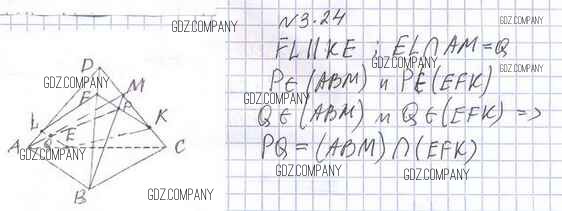 N3.24
FL||KE ; EL∩AM=Q
P∈(ABM) и P∈(EFK)
Q∈(ABM) и Q∈(EFK) =>
PQ=(ABM)∩(EFK)
D
E
M
P
L
K
E
A
Q
C
B
GDZ.COMPANY
GDZ.COMPANY
GDZ.COMPANY
GDZ.COMPANY
GDZ.COMPANY
GDZ.COMPANY
GDZ.COMPANY
GDZ.COMPANY
GDZ.COMPANY
GDZ.COMPANY
GDZ.COMPANY